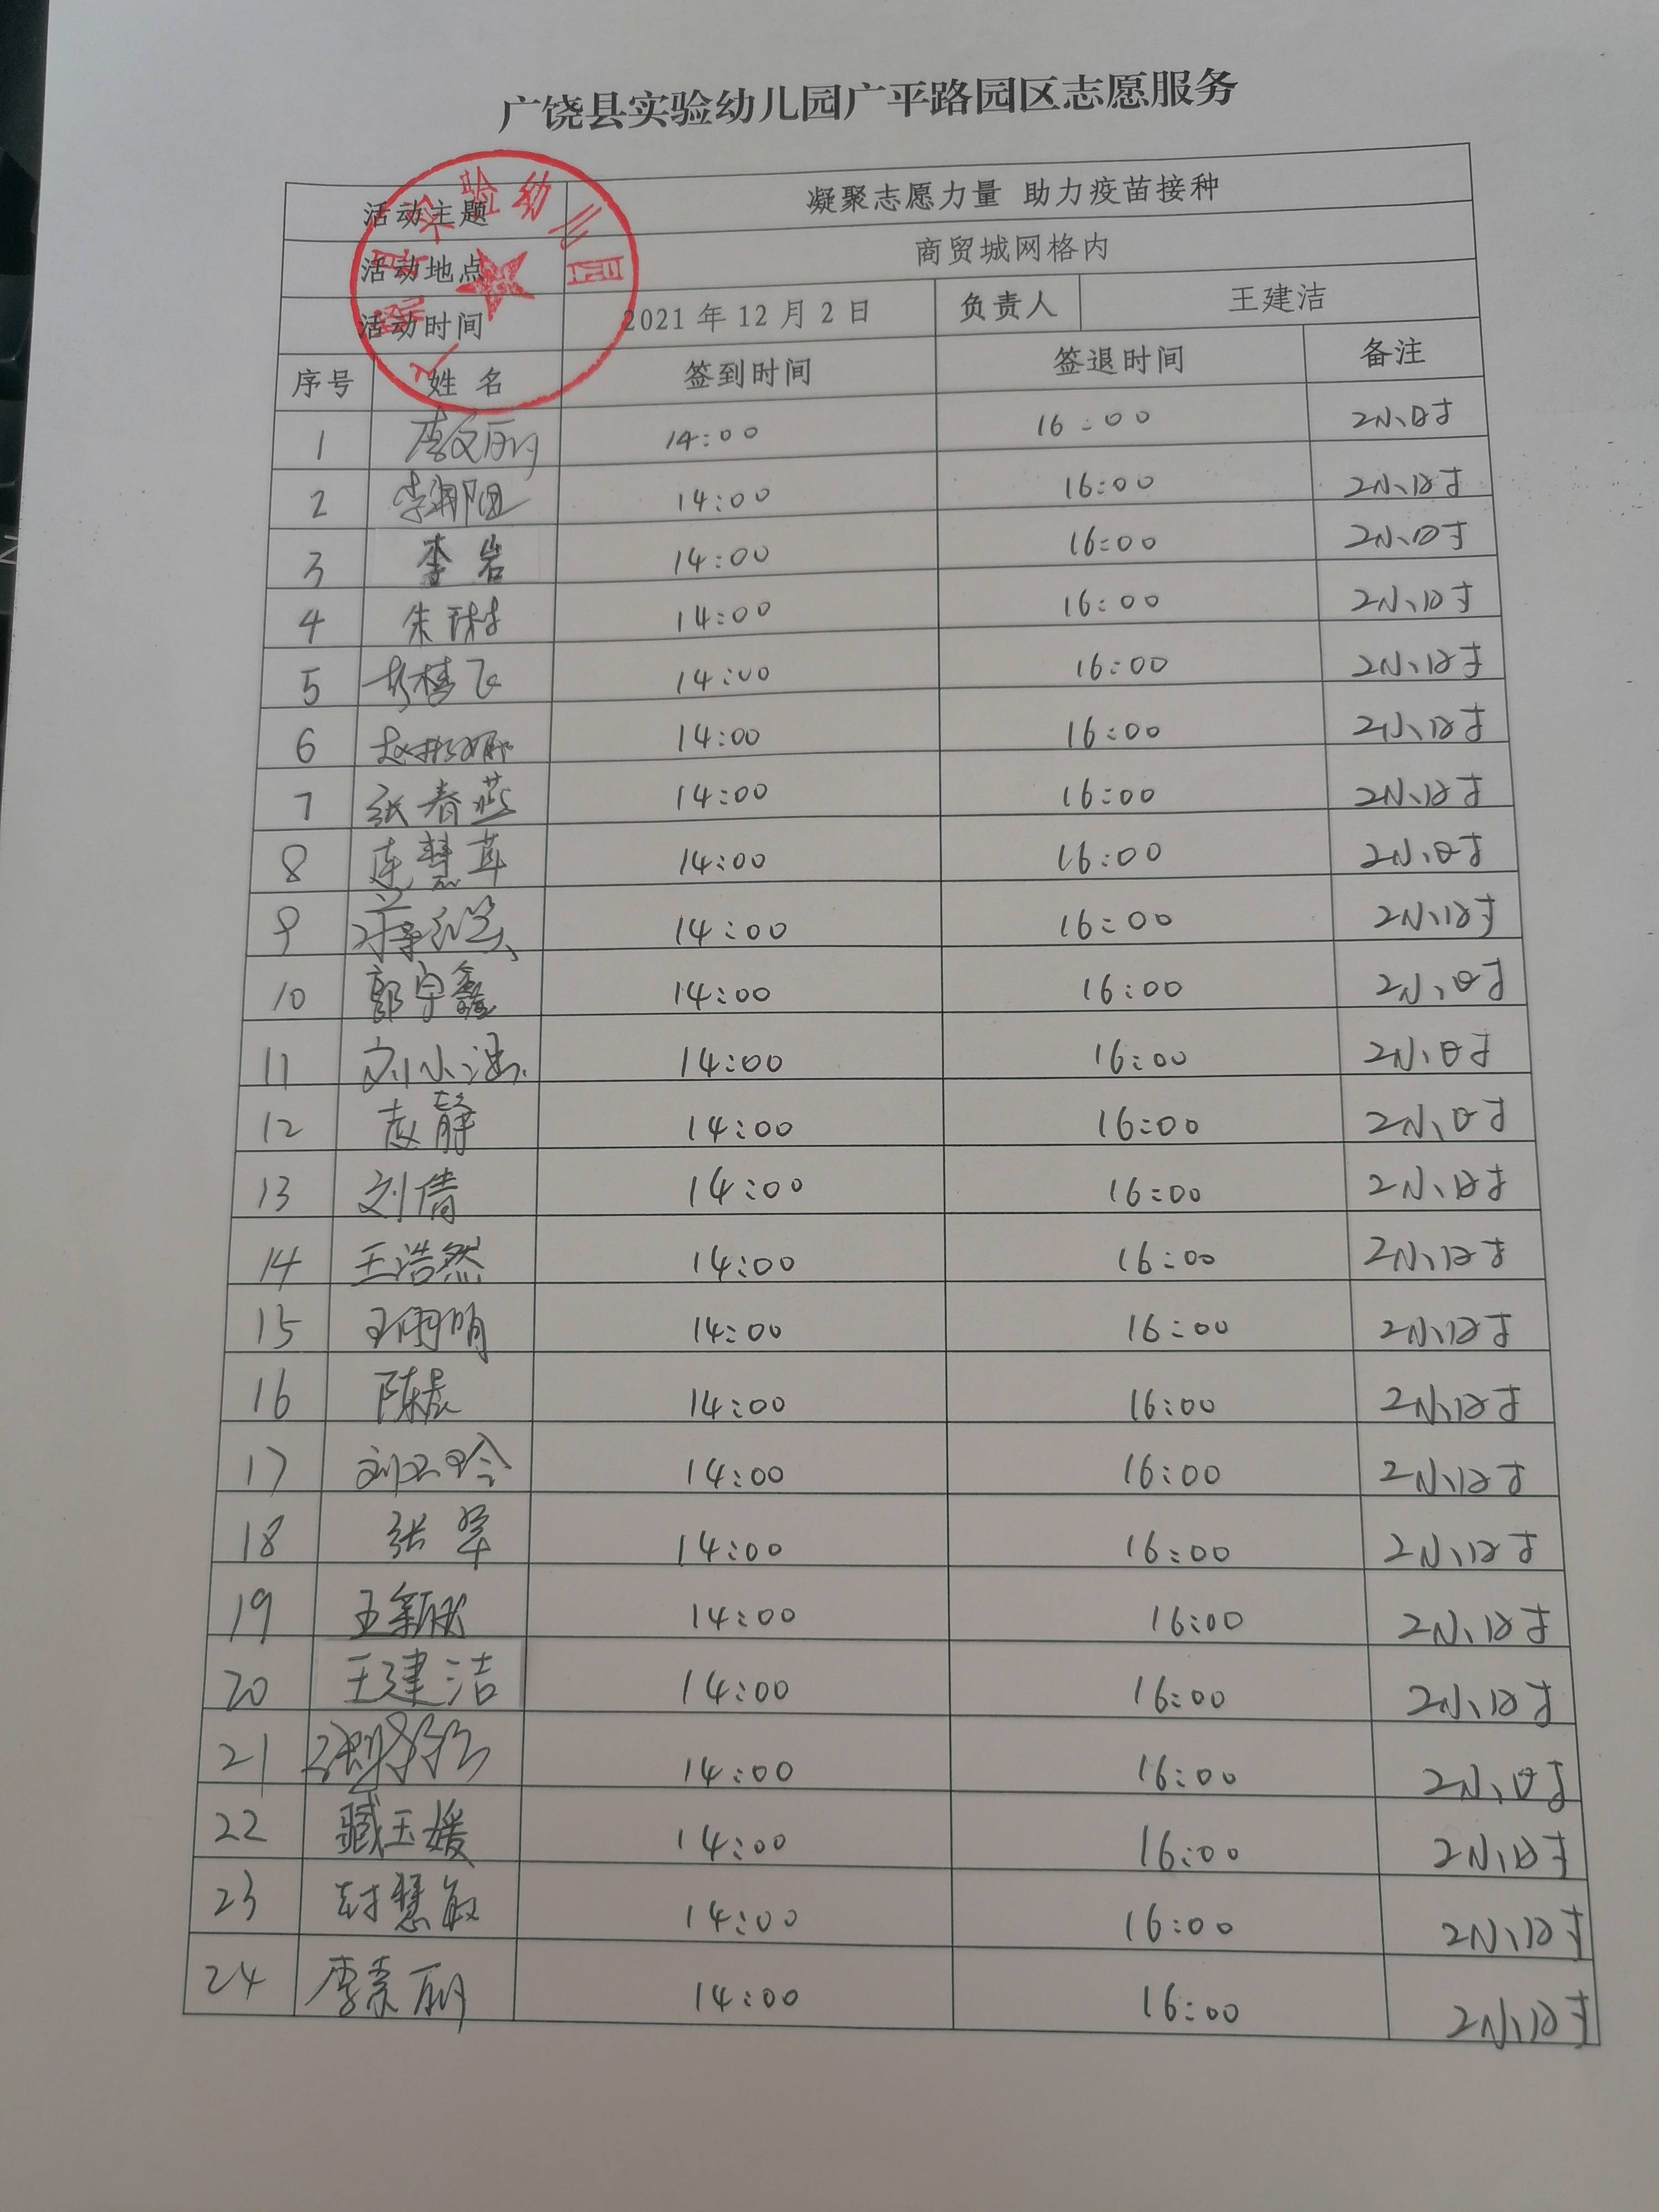 广饶县实验幼儿园广平路园区志愿服务
活动主题 凝聚志愿力量 助力疫苗接种
活动地点 商贸城网格内
活动时间 2021年12月2日 负责人 王建洁
序号 姓名 签到时间 签退时间 备注
1 李文丽 14:00 16:00 2小时
2 李朝阳 14:00 16:00 2小时
3 李岩 14:00 16:00 2小时
4 朱琳 14:00 16:00 2小时
5 14:00 16:00 2小时
6 14:00 16:00 2小时
7 张春燕 14:00 16:00 2小时
8 连慧茸 14:00 16:00 2小时
9 14:00 16:00 2小时
10 郭宇鑫 14:00 16:00 2小时
11 刘小涵 14:00 16:00 2小时
12 赵静 14:00 16:00 2小时
13 刘倩 14:00 16:00 2小时
14 王浩然 14:00 16:00 2小时
15 14:00 16:00 2小时
16 陈晨 14:00 16:00 2小时
17 14:00 16:00 2小时
18 张翠 14:00 16:00 2小时
19 14:00 16:00 2小时
20 王建洁 14:00 16:00 2小时
21 14:00 16:00 2小时
22 臧玉媛 14:00 16:00 2小时
23 封慧敏 14:00 16:00 2小时
24 李素丽 14:00 16:00 2小时